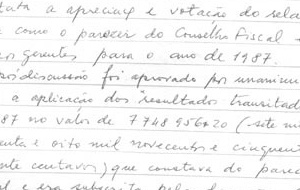 tuta a apreciaç e votação do rela
e como o parecer do Conselho Fiscal
os gerentes para o ano de 1987.
pós discussão foi aprovado por unanimi
a aplicação dos resultados transitad
87 no valor de 7748956$20 (sete mil
enta e oito mil novecentos e cinquen
nte centavos) que constava do parec